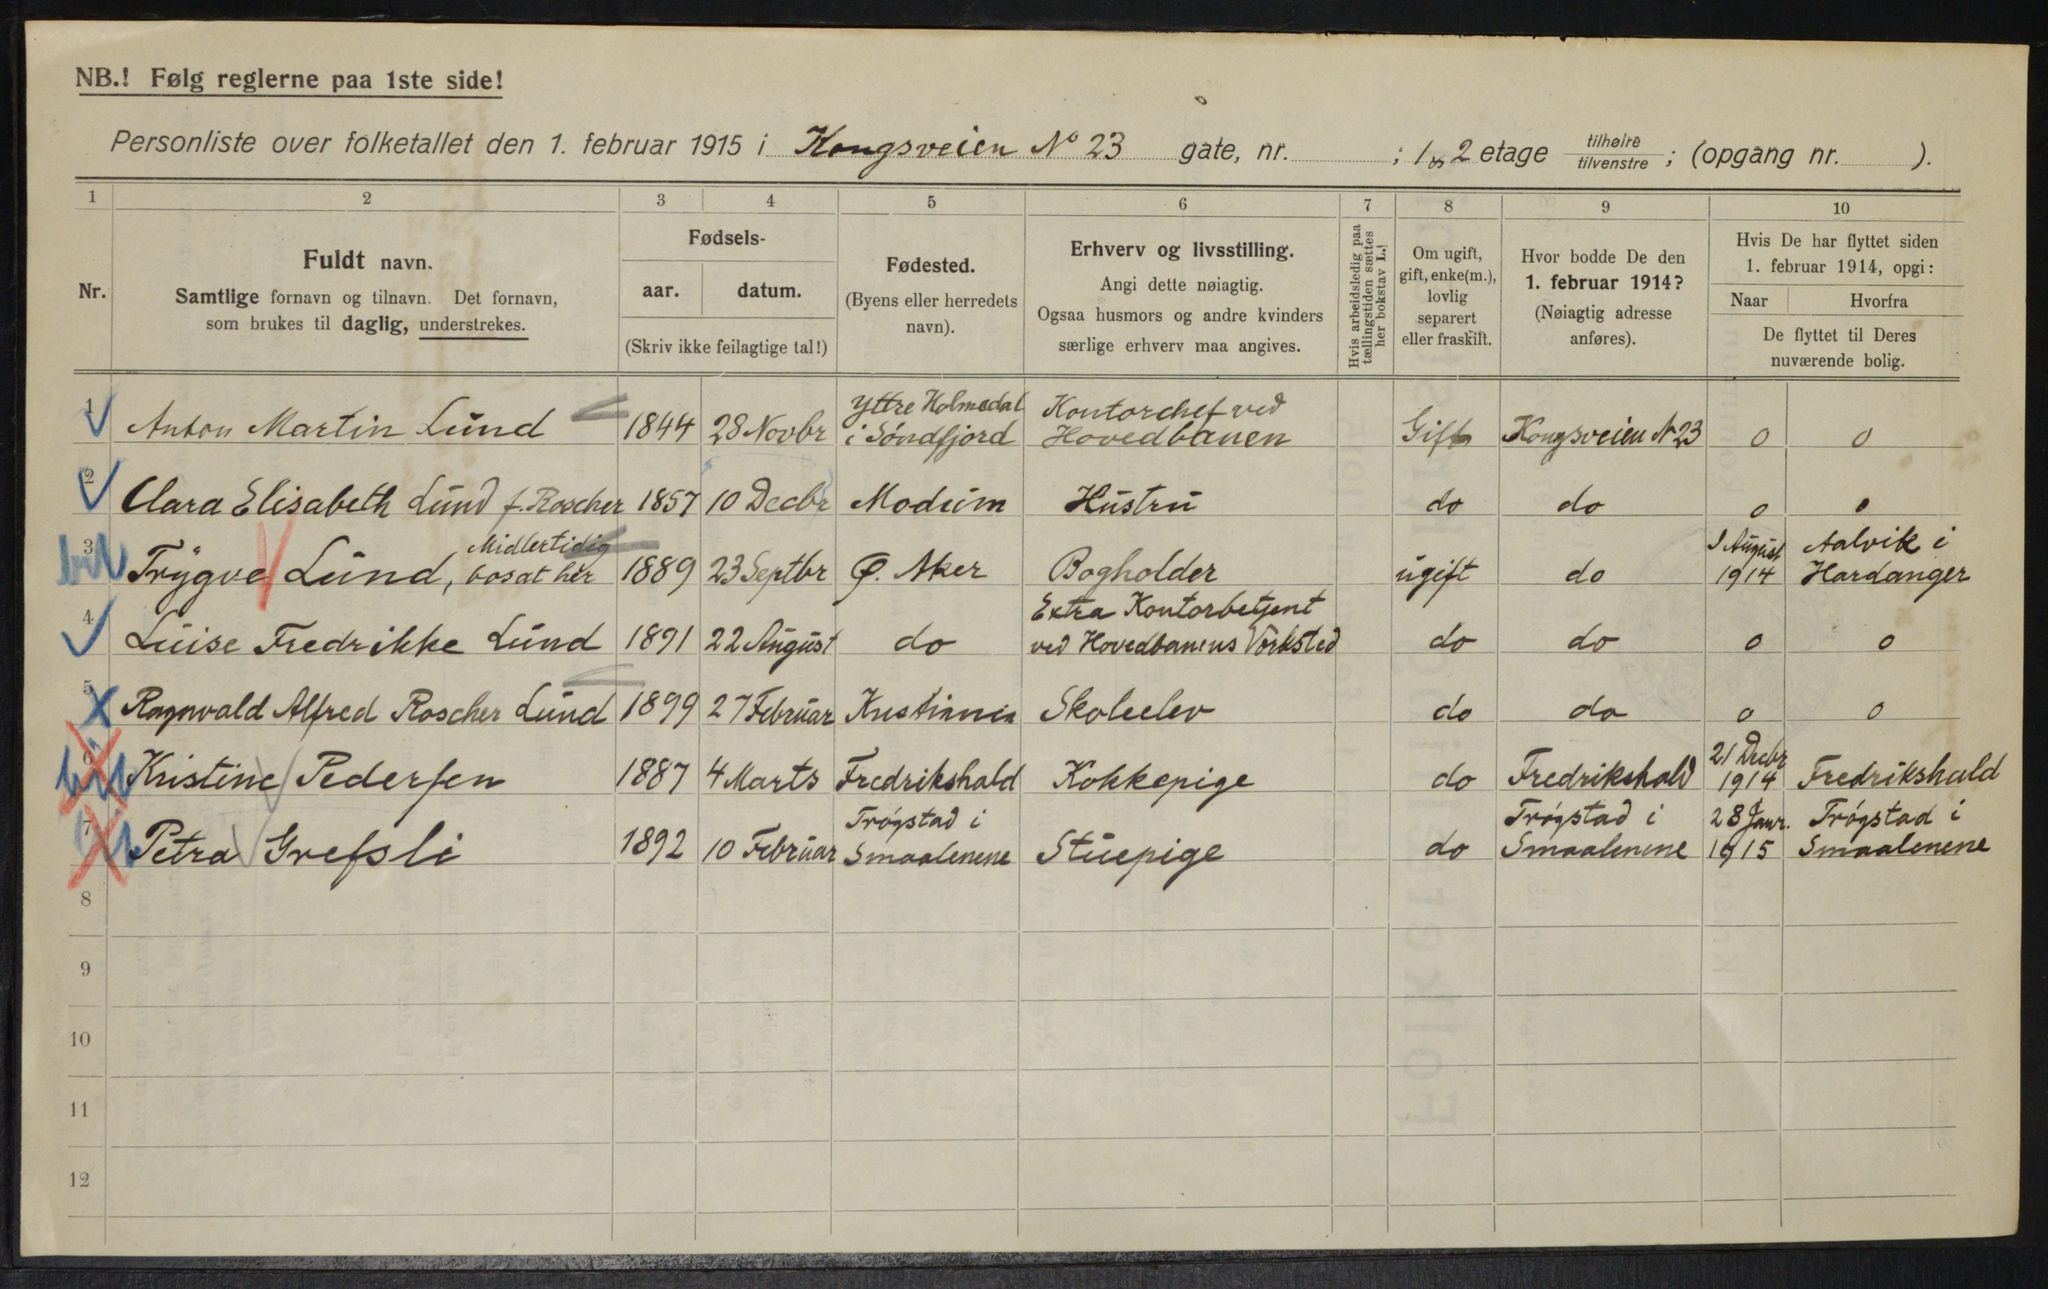 NB.! Følg reglerne paa 1ste side!
Personliste over folketallet den 1. februar 1915 i Kongsveien No 23 gate, nr. ; 1 og 2 etage tilhøire tilvenstre ; (opgang nr. ).
1 2 3 4 5 6 7 8 9 10
Nr.
Fuldt navn.
Samtlige fornavn og tilnavn. Det fornavn,
som brukes til daglig, understrekes.
Fødsels-
aar. datum.
(Skriv ikke feilagtige tal!)
Fødested.
(Byens eller herredets
navn).
Erhverv og livsstilling.
Angi dette nøiagtig.
Ogsaa husmors og andre kvinders
særlige erhverv maa angives.
Hvis arbeidsledig paa
tællingstiden sættes
her bokstav L.!
Om ugift,
gift, enke(m.),
lovlig
separert
eller fraskilt.
Hvor bodde De den
1. februar 1914?
(Nøiagtig adresse
anføres).
Hvis De har flyttet siden
1. februar 1914, opgi:
Naar Hvorfra
De flyttet til Deres
nuværende bolig.
1 Anton Martin Lund 1844 28 Novbr Yttre Holmedal i Søndfjord Kontorchef ved Hovedbanen Gift Kongsveien N 23 0 0
2 Clara Elisabeth Lund f. Roscher 1857 10 Decbr Modum Hustru do do 0 0
3 Trygve Lund, Midlertidig bosat her 1889 23 Septbr Ø. Aker Bogholder ugift do 1 August 1914 Aalvik i Hardanger
4 Luise Fredrikke Lund 1891 22 August do Extra Kontorbetjent ved Hovedbanens Værksted do do 0 0
5 Ragnvald Alfred Roscher Lund 1899 27 Februar Kristiania Skoleelev do do 0 0
6 Kristine Pedersen 1887 4 Marts Fredrikshald Kokkepige do Fredrikshald 21 Decbr 1914 Fredrikshald
7 Petra Grefsli 1892 10 Februar Trøgstad i Smaalenene Stuepige do Trøgstad i Smaalenene 28 Janr. 1915 Trøgstad i Smaalenene
8
9
10
11
12